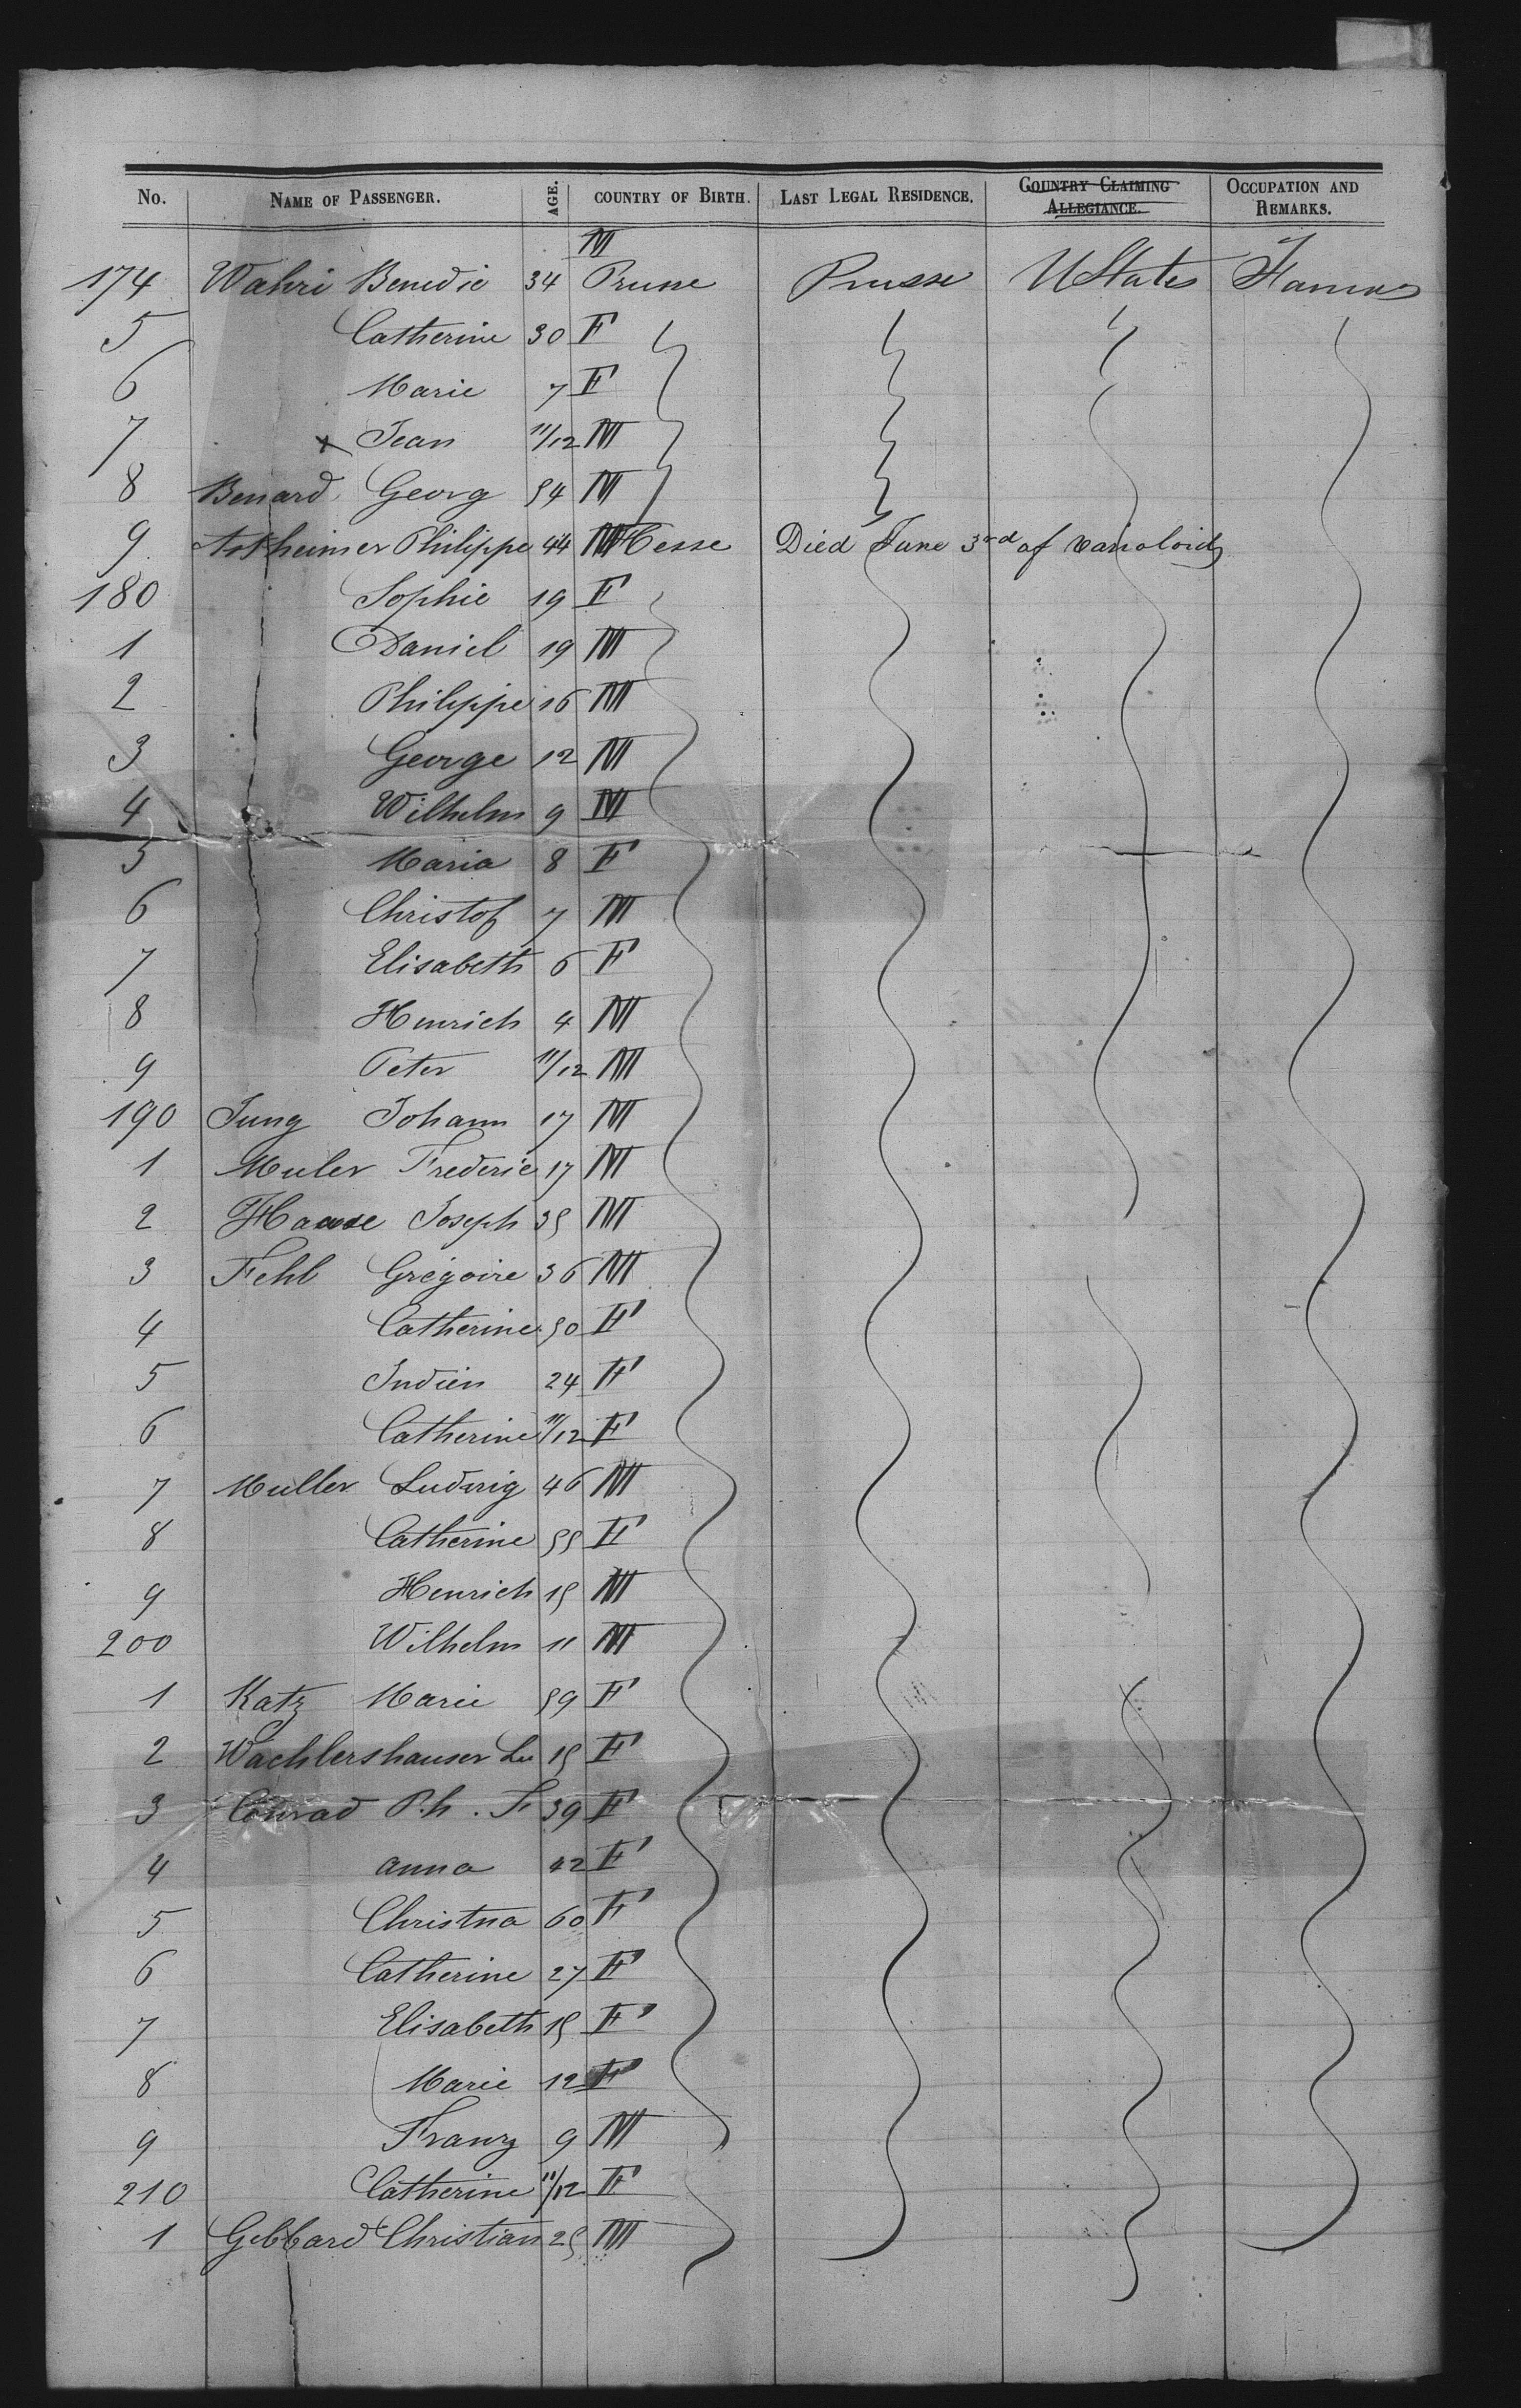 No. NAME OF PASSENGER. AGE. COUNTRY OF BIRTH. LAST LEGAL RESIDENCE. COUNTRY CLAIMING ALLEGIANCE. OCCUPATION AND REMARKS.
174 Wahri Benedic 34 M Prusse Prusse UStates Farmer
5 Catherine 30 F
6 Marie 7 F
7 x Jean 11/12 M
8 Benard Georg 54 M
9 Astheimer Philippe 44 M Hesse Died June 3rd of varioloid
180 Sophie 19 F
1 Daniel 19 M
2 Philippe 16 M
3 George 12 M
4 Wilhelm 9 M
5 Maria 8 F
6 Christof 7 M
7 Elisabeth 6 F
8 Henrich 4 M
9 Peter 11/12 M
190 Jung Johann 17 M
1 Muler Frederic 17 M
2 Joseph 35 M
3 Fehl Grégoire 36 M
4 Catherine 50 F
5 Indien 24 F
6 Catherine 11/12 F
7 Muller Ludwig 46 M
8 Catherine 55 F
9 Henrich 15 M
200 Wilhelm 11 M
1 Katz Marie 59 F
2 Wachlershauser 15 F
3 Conrad Ph. F 39 F
4 anna 42 F
5 Christna 60 F
6 Catherine 27 F
7 Elisabeth 15 F
8 Marie 12 F
9 Franz 9 M
210 Catherine 11/12 F
1 Gebbard Christian 25 M